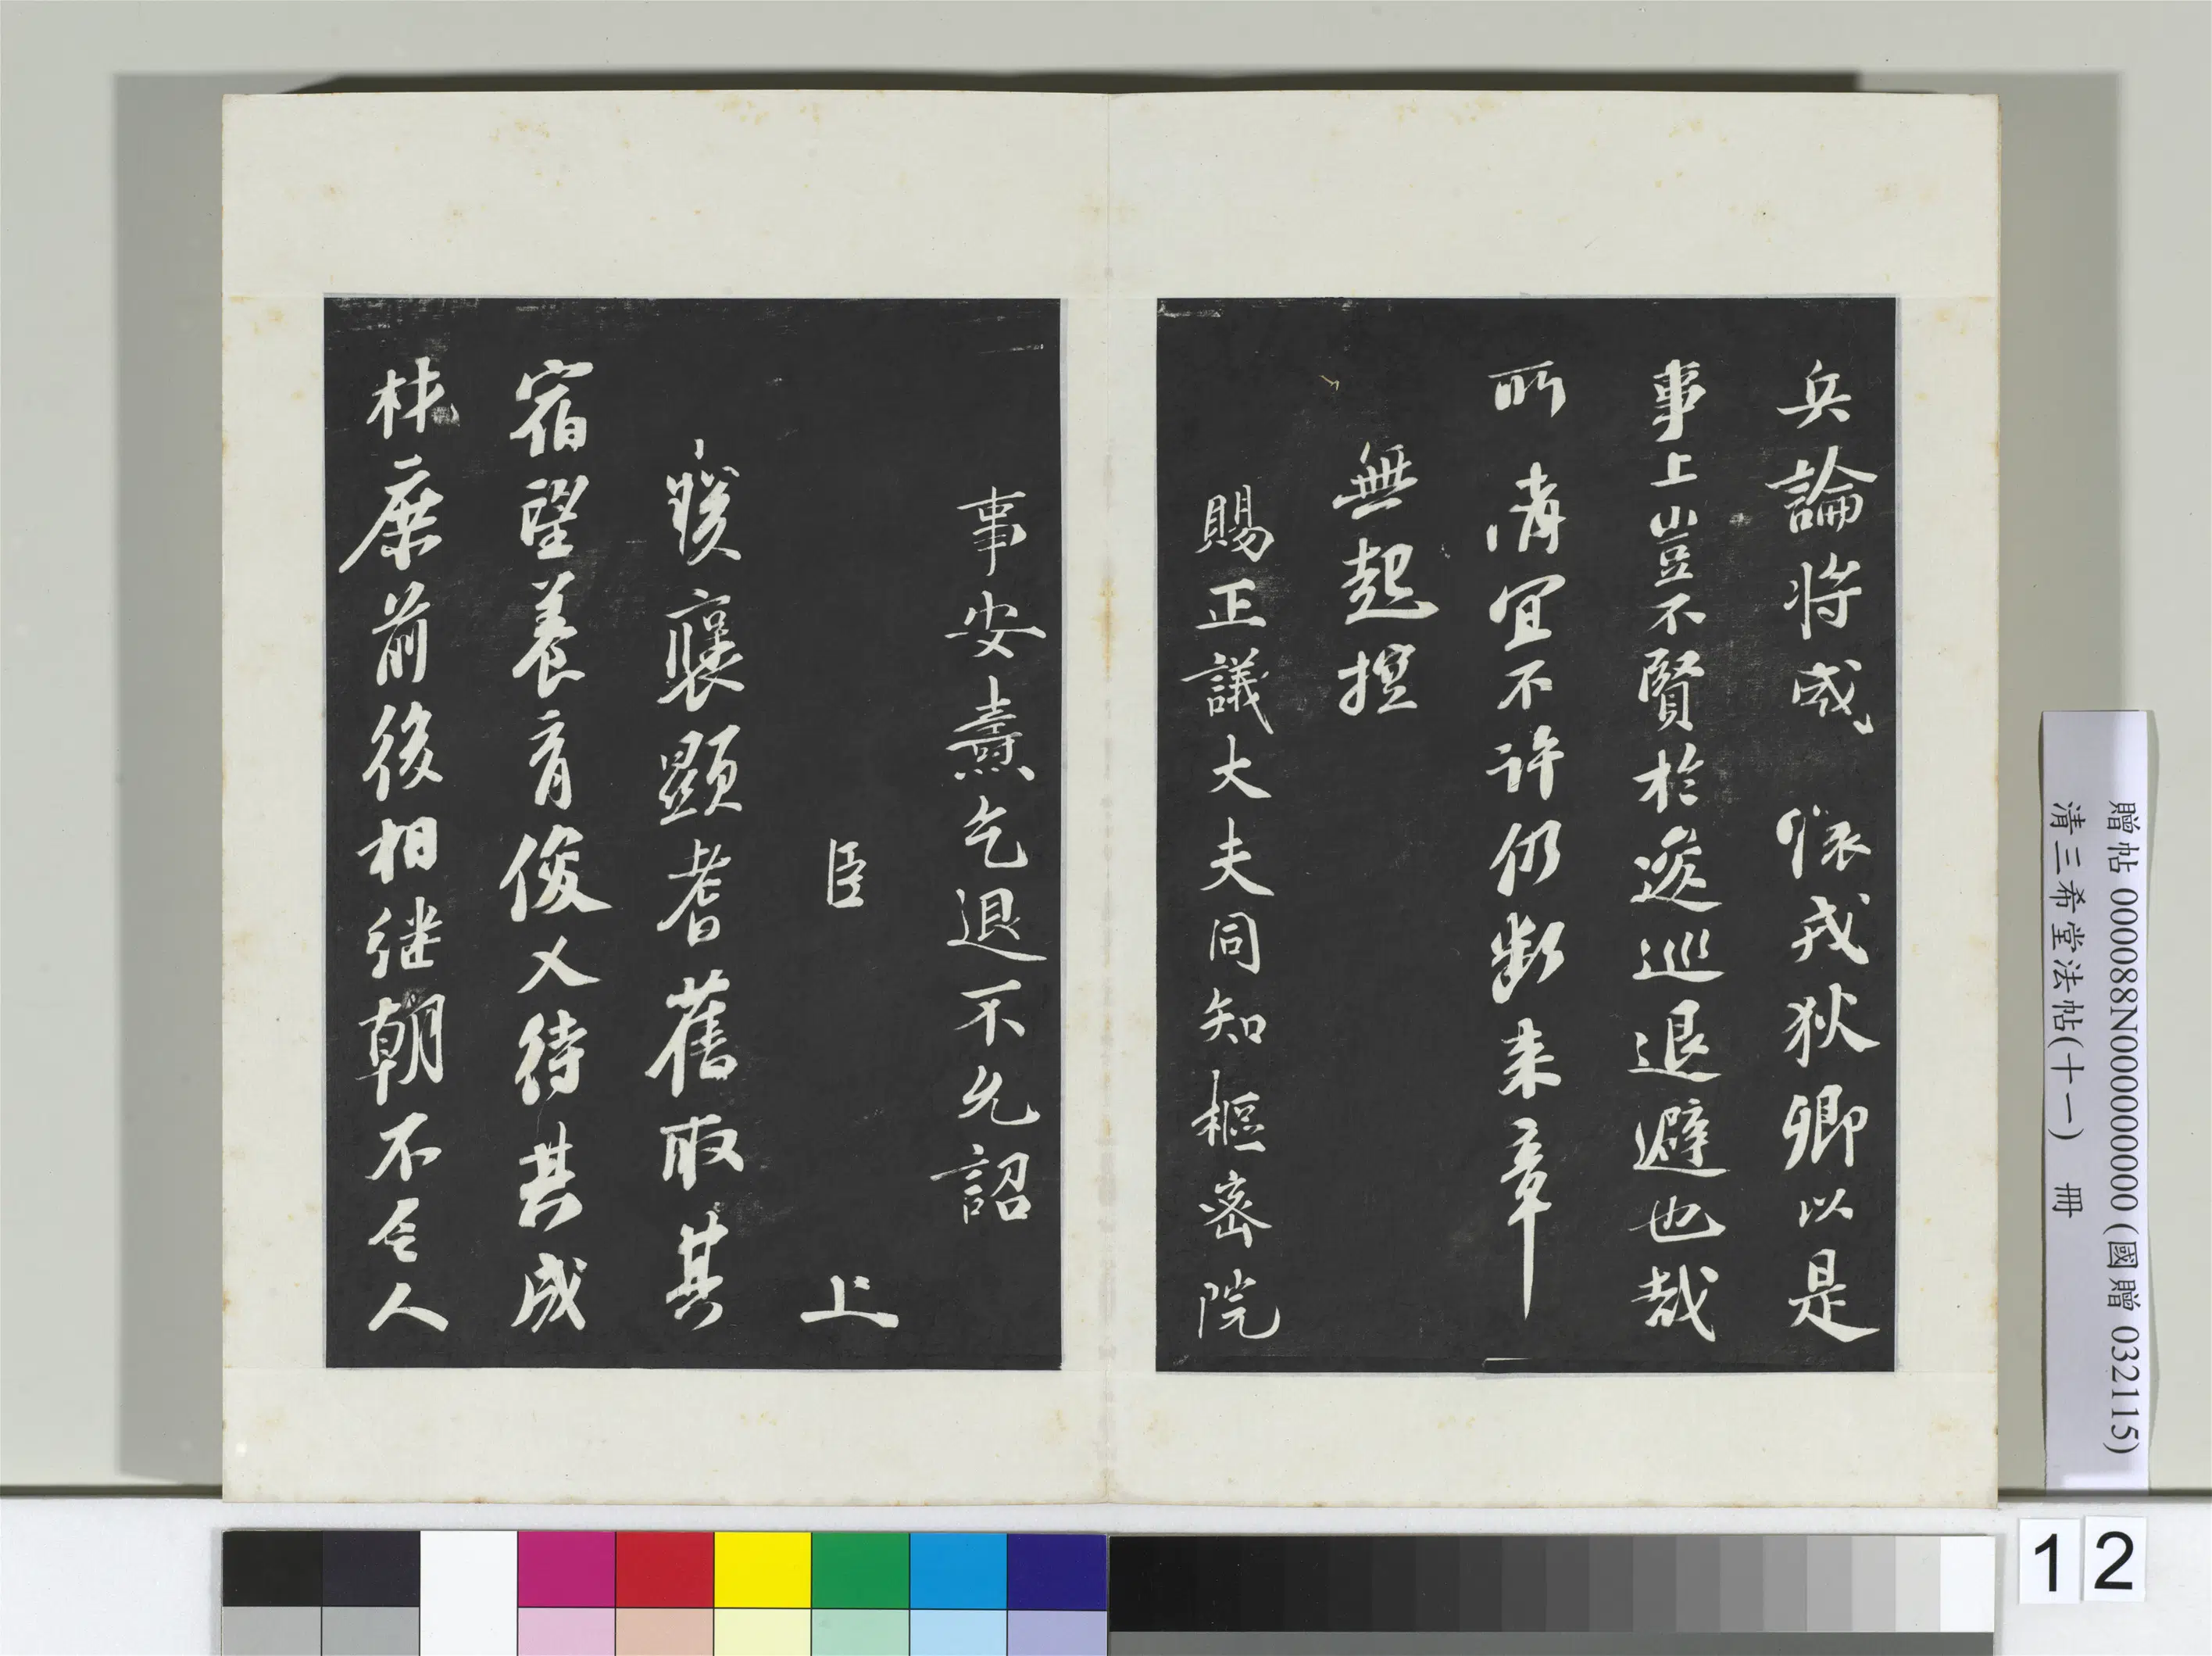 兵論將威懷戎狄卿以是
事上豈不賢於逡巡退避也哉
所請宜不許仍斷來章
無起撰
賜正議大夫同知樞密院
事安燾乞退不允詔
臣 上
朕褒顯耆舊取其
宿望養育俊乂待其成
材庶前後相继朝不乏人
贈帖 000088N000000000 (國贈 032115)
清三希堂法帖(十一) 冊
12